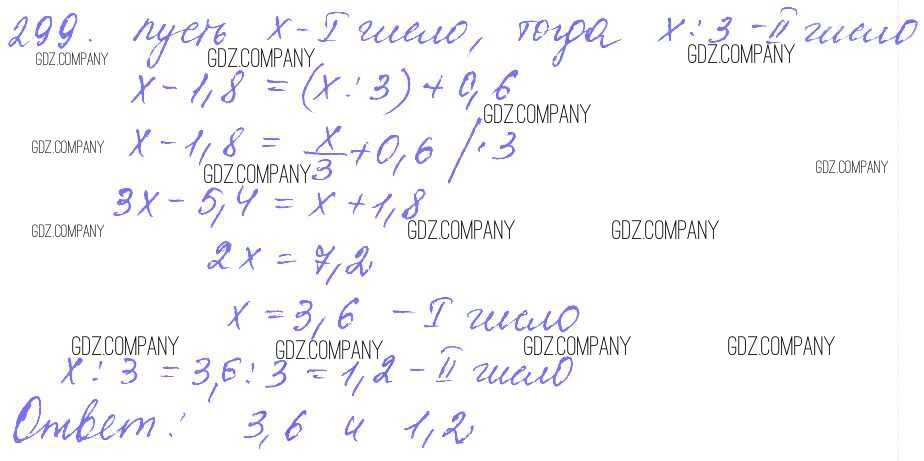 299. пусть x - I число, тогда x : 3 - II число
GDZ.COMPANY GDZ.COMPANY GDZ.COMPANY
x - 1,8 = (x : 3) + 0,6
GDZ.COMPANY
x - 1,8 = x/3 + 0,6 / · 3
GDZ.COMPANY GDZ.COMPANY GDZ.COMPANY
3x - 5,4 = x + 1,8
GDZ.COMPANY GDZ.COMPANY GDZ.COMPANY
2x = 7,2
x = 3,6 - I число
GDZ.COMPANY GDZ.COMPANY GDZ.COMPANY GDZ.COMPANY
x : 3 = 3,6 : 3 = 1,2 - II число
Ответ: 3,6 и 1,2